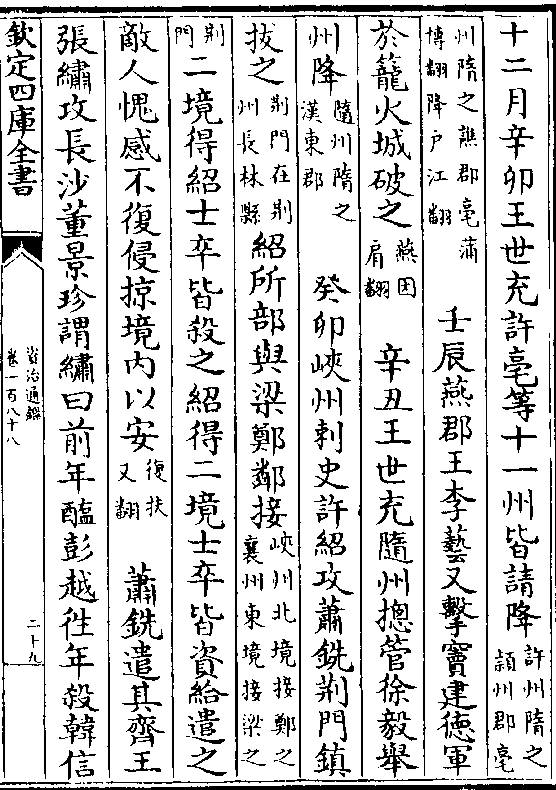 十二月辛卯王世充許亳等十一州皆請降許州隋之潁州郡亳
州隋之譙郡亳蒲博翻降戶江翻　壬辰燕郡王李藝又擊竇建德軍
於籠火城破之燕因肩翻　辛丑王世充隨州摠管徐毅舉
州降隨州隋之漢東郡　癸卯峽州刺史許紹攻蕭銑荆門鎮
拔之荆門在荆州長林縣紹所部與梁鄭鄰接峽州北境接鄭之襄州東境接梁之
荆門二境得紹士卒皆殺之紹得二境士卒皆資給遣之
敵人愧感不復侵掠境内以安復扶又翻　蕭銑遣其齊王
張繡攻長沙董景珍謂繡曰前年醢彭越徃年殺韓信
欽定四庫全書
資治通鑑
卷一百八十八
二十九